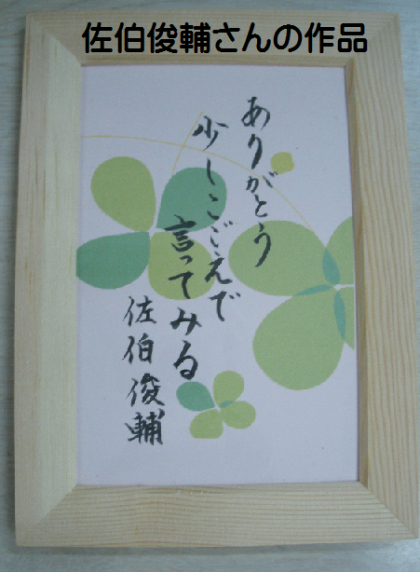 佐伯俊輔さんの作品
ありがとう
少しこごえで
言ってみる
佐伯俊輔